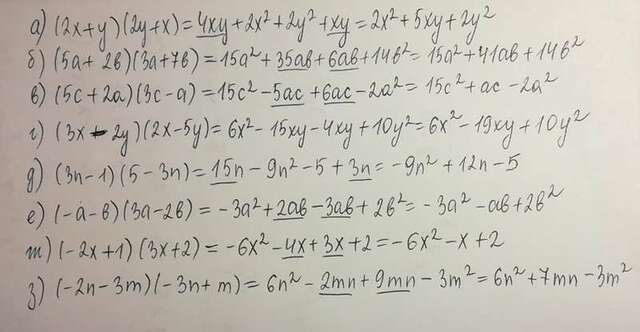 а) (2x+y)(2y+x) = 4xy+2x²+2y²+xy = 2x²+5xy+2y²
б) (5a+2в)(3a+7в) = 15a²+35aв+6aв+14в² = 15a²+41aв+14в²
в) (5c+2a)(3c-a) = 15c²-5ac+6ac-2a² = 15c²+ac-2a²
г) (3x-2y)(2x-5y) = 6x²-15xy-4xy+10y² = 6x²-19xy+10y²
д) (3n-1)(5-3n) = 15n-9n²-5+3n = -9n²+12n-5
е) (-a-в)(3a-2в) = -3a²+2aв-3aв+2в² = -3a²-aв+2в²
ж) (-2x+1)(3x+2) = -6x²-4x+3x+2 = -6x²-x+2
з) (-2n-3m)(-3n+m) = 6n²-2mn+9mn-3m² = 6n²+7mn-3m²